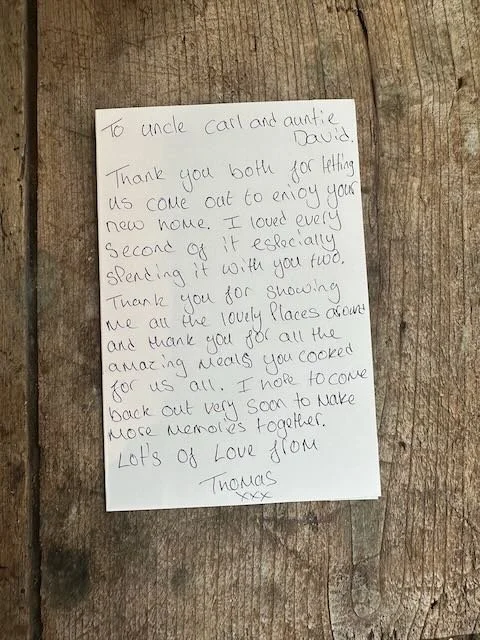 To uncle carl and auntie
David.
Thank you both for letting
us come out to enjoy your
new home. I loved every
second of it especially
spending it with you two.
Thank you for showing
me all the lovely Places around
and thank you for all the
amazing meals you cooked
for us all. I hope to come
back out very soon to make
more memories together.
Lot's of Love from
Thomas
xxx